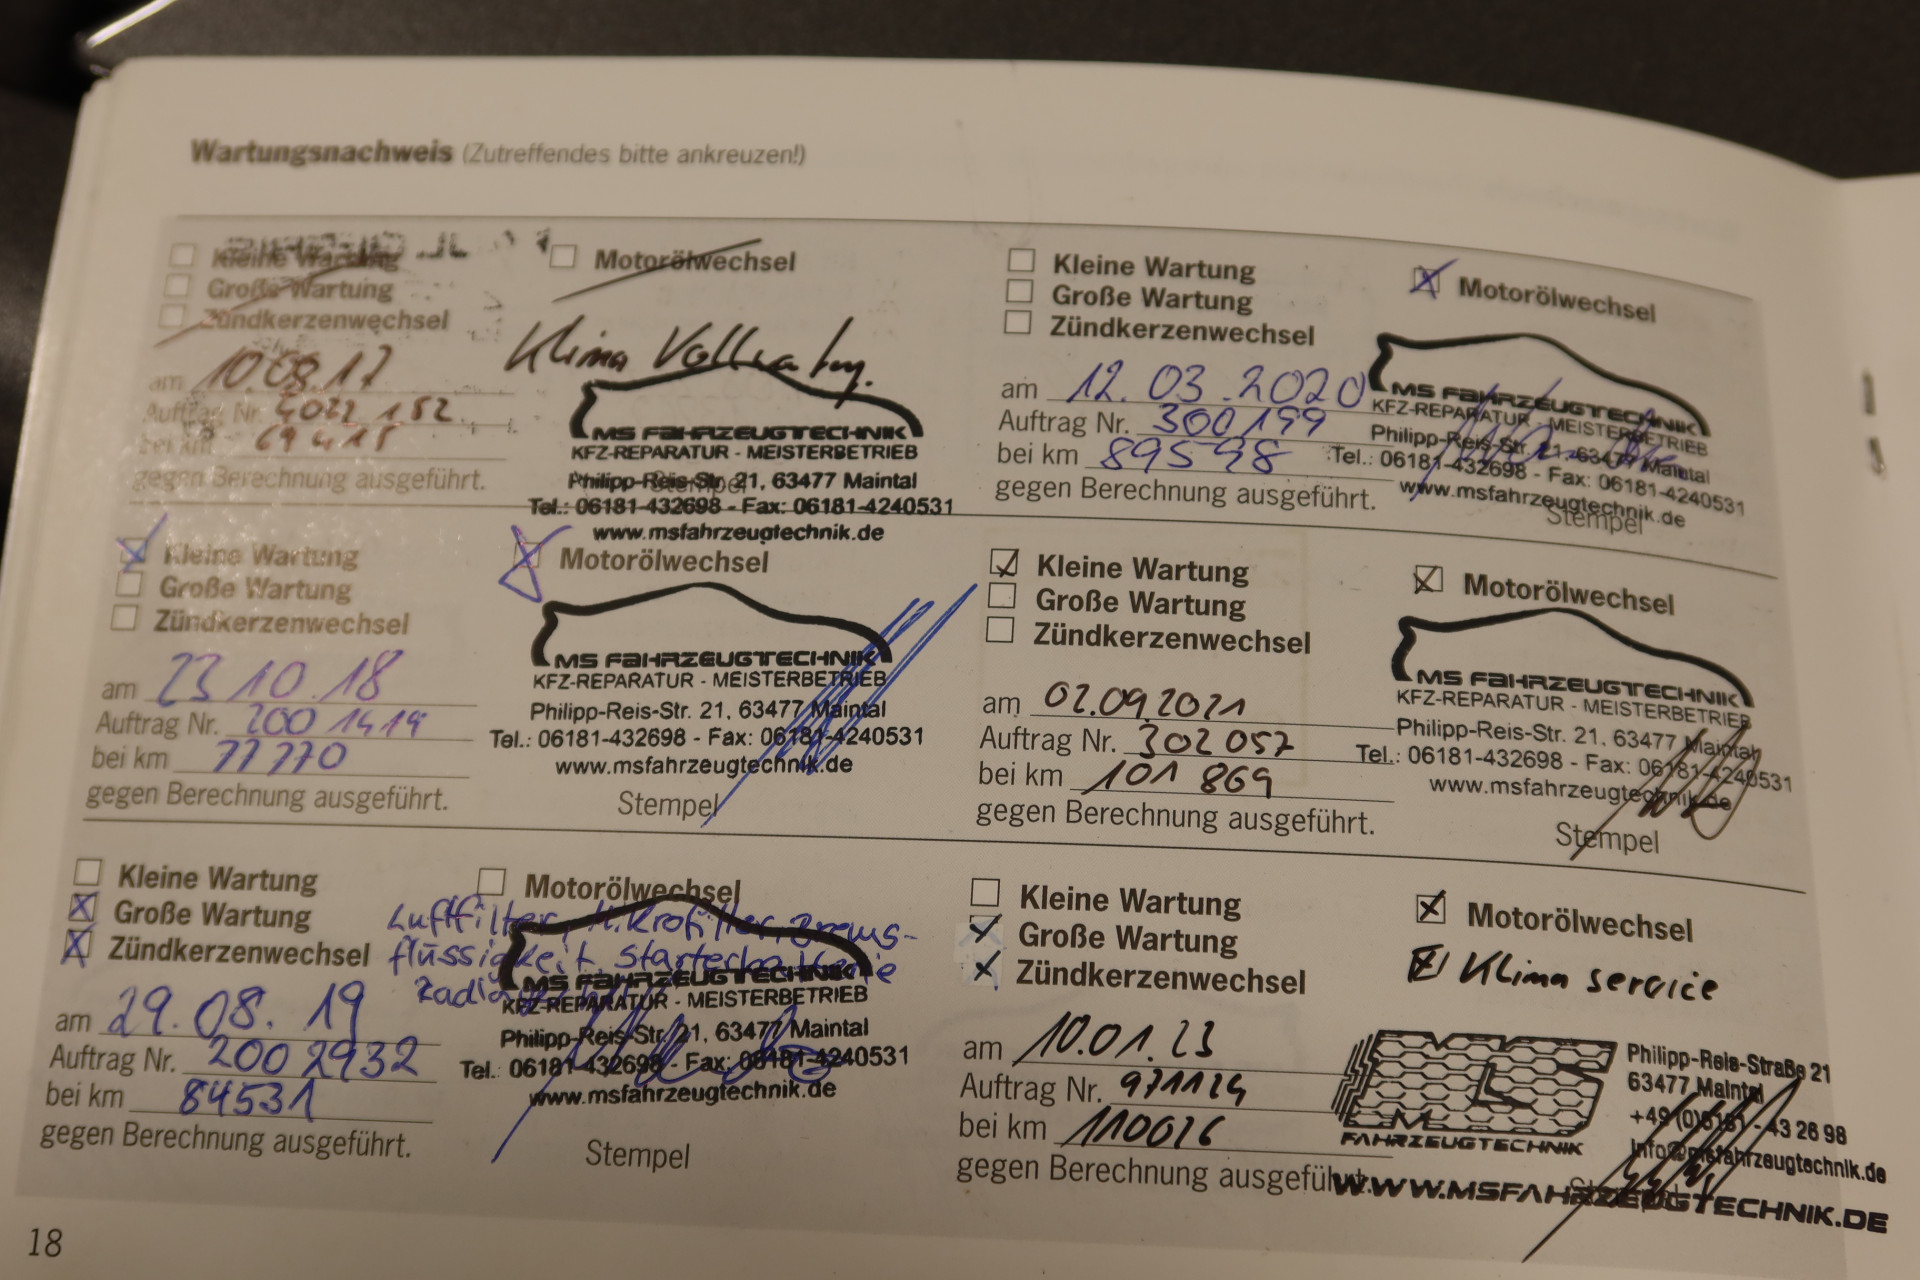 Wartungsnachweis (Zutreffendes bitte ankreuzen!)
Kleine Wartung
Große Wartung
Zündkerzenwechsel
Motorölwechsel
Klima
am 10.08.17
Auftrag Nr. 4022 152
bei km 69415
gegen Berechnung ausgeführt.
MS FAHRZEUGTECHNIK
KFZ-REPARATUR - MEISTERBETRIEB
Philipp-Reis-Str. 21, 63477 Maintal
Tel.: 06181-432698 - Fax: 06181-4240531
www.msfahrzeugtechnik.de
Stempel
Kleine Wartung
Große Wartung
Zündkerzenwechsel
Motorölwechsel
am 23 10.18
Auftrag Nr. 200 1419
bei km 77770
gegen Berechnung ausgeführt.
MS FAHRZEUGTECHNIK
KFZ-REPARATUR - MEISTERBETRIEB
Philipp-Reis-Str. 21, 63477 Maintal
Tel.: 06181-432698 - Fax: 06181-4240531
www.msfahrzeugtechnik.de
Stempel
Kleine Wartung
Große Wartung
Zündkerzenwechsel
Motorölwechsel
Luftfilter, Mikrofilter, Brems-
flüssigkeit, Starterbatterie
am 29.08.19
Auftrag Nr. 200 2932
bei km 84531
gegen Berechnung ausgeführt.
MS FAHRZEUGTECHNIK
KFZ-REPARATUR - MEISTERBETRIEB
Philipp-Reis-Str. 21, 63477 Maintal
Tel.: 06181-432698 - Fax: 06181-4240531
www.msfahrzeugtechnik.de
Stempel
Kleine Wartung
Große Wartung
Zündkerzenwechsel
Motorölwechsel
am 12.03.2020
Auftrag Nr. 300199
bei km 89598
gegen Berechnung ausgeführt.
MS FAHRZEUGTECHNIK
KFZ-REPARATUR - MEISTERBETRIEB
Philipp-Reis-Str. 21, 63477 Maintal
Tel.: 06181-432698 - Fax: 06181-4240531
www.msfahrzeugtechnik.de
Stempel
Kleine Wartung
Große Wartung
Zündkerzenwechsel
Motorölwechsel
am 02.09.2021
Auftrag Nr. 302057
bei km 101 869
gegen Berechnung ausgeführt.
MS FAHRZEUGTECHNIK
KFZ-REPARATUR - MEISTERBETRIEB
Philipp-Reis-Str. 21, 63477 Maintal
Tel.: 06181-432698 - Fax: 06181-4240531
www.msfahrzeugtechnik.de
Stempel
Kleine Wartung
Große Wartung
Zündkerzenwechsel
Motorölwechsel
Klima service
am 10.01.23
Auftrag Nr. 971124
bei km 110026
gegen Berechnung ausgeführt.
MS
FAHRZEUGTECHNIK
Philipp-Reis-Straße 21
63477 Maintal
+49 (0)6181 - 43 26 98
Info@msfahrzeugtechnik.de
WWW.MSFAHRZEUGTECHNIK.DE
18